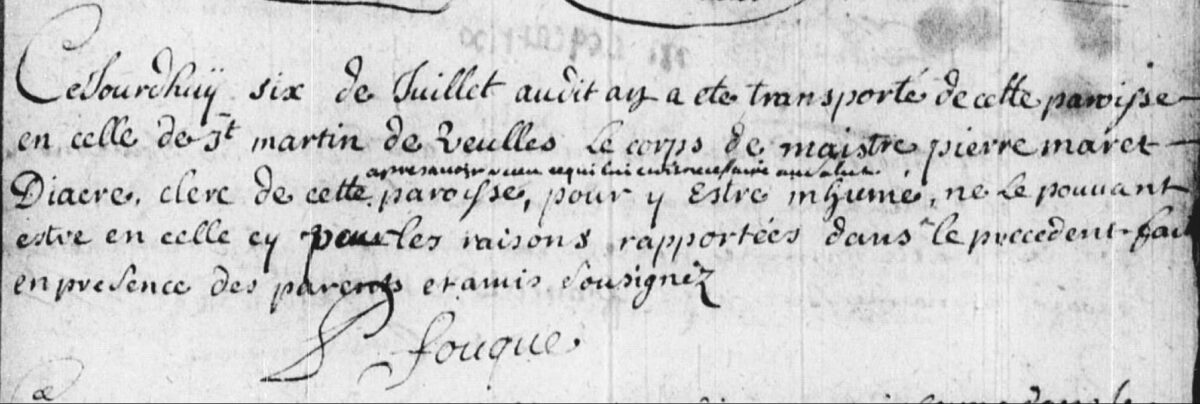 CeJourdhuÿ six de Juillet audit an a ete transporté de cette paroisse
en celle de St martin de Veulles Le corps de maistre pierre maret
apres avoir receu ce qui lui etoit necessaire au salut
Diacre, clerc de cette paroisse, pour y Estre inhumé, ne Le pouvant
estre en celle cy pour les raisons rapportées dans le precedent. fait
en presence des parents et amis Sousignéz
P fouque